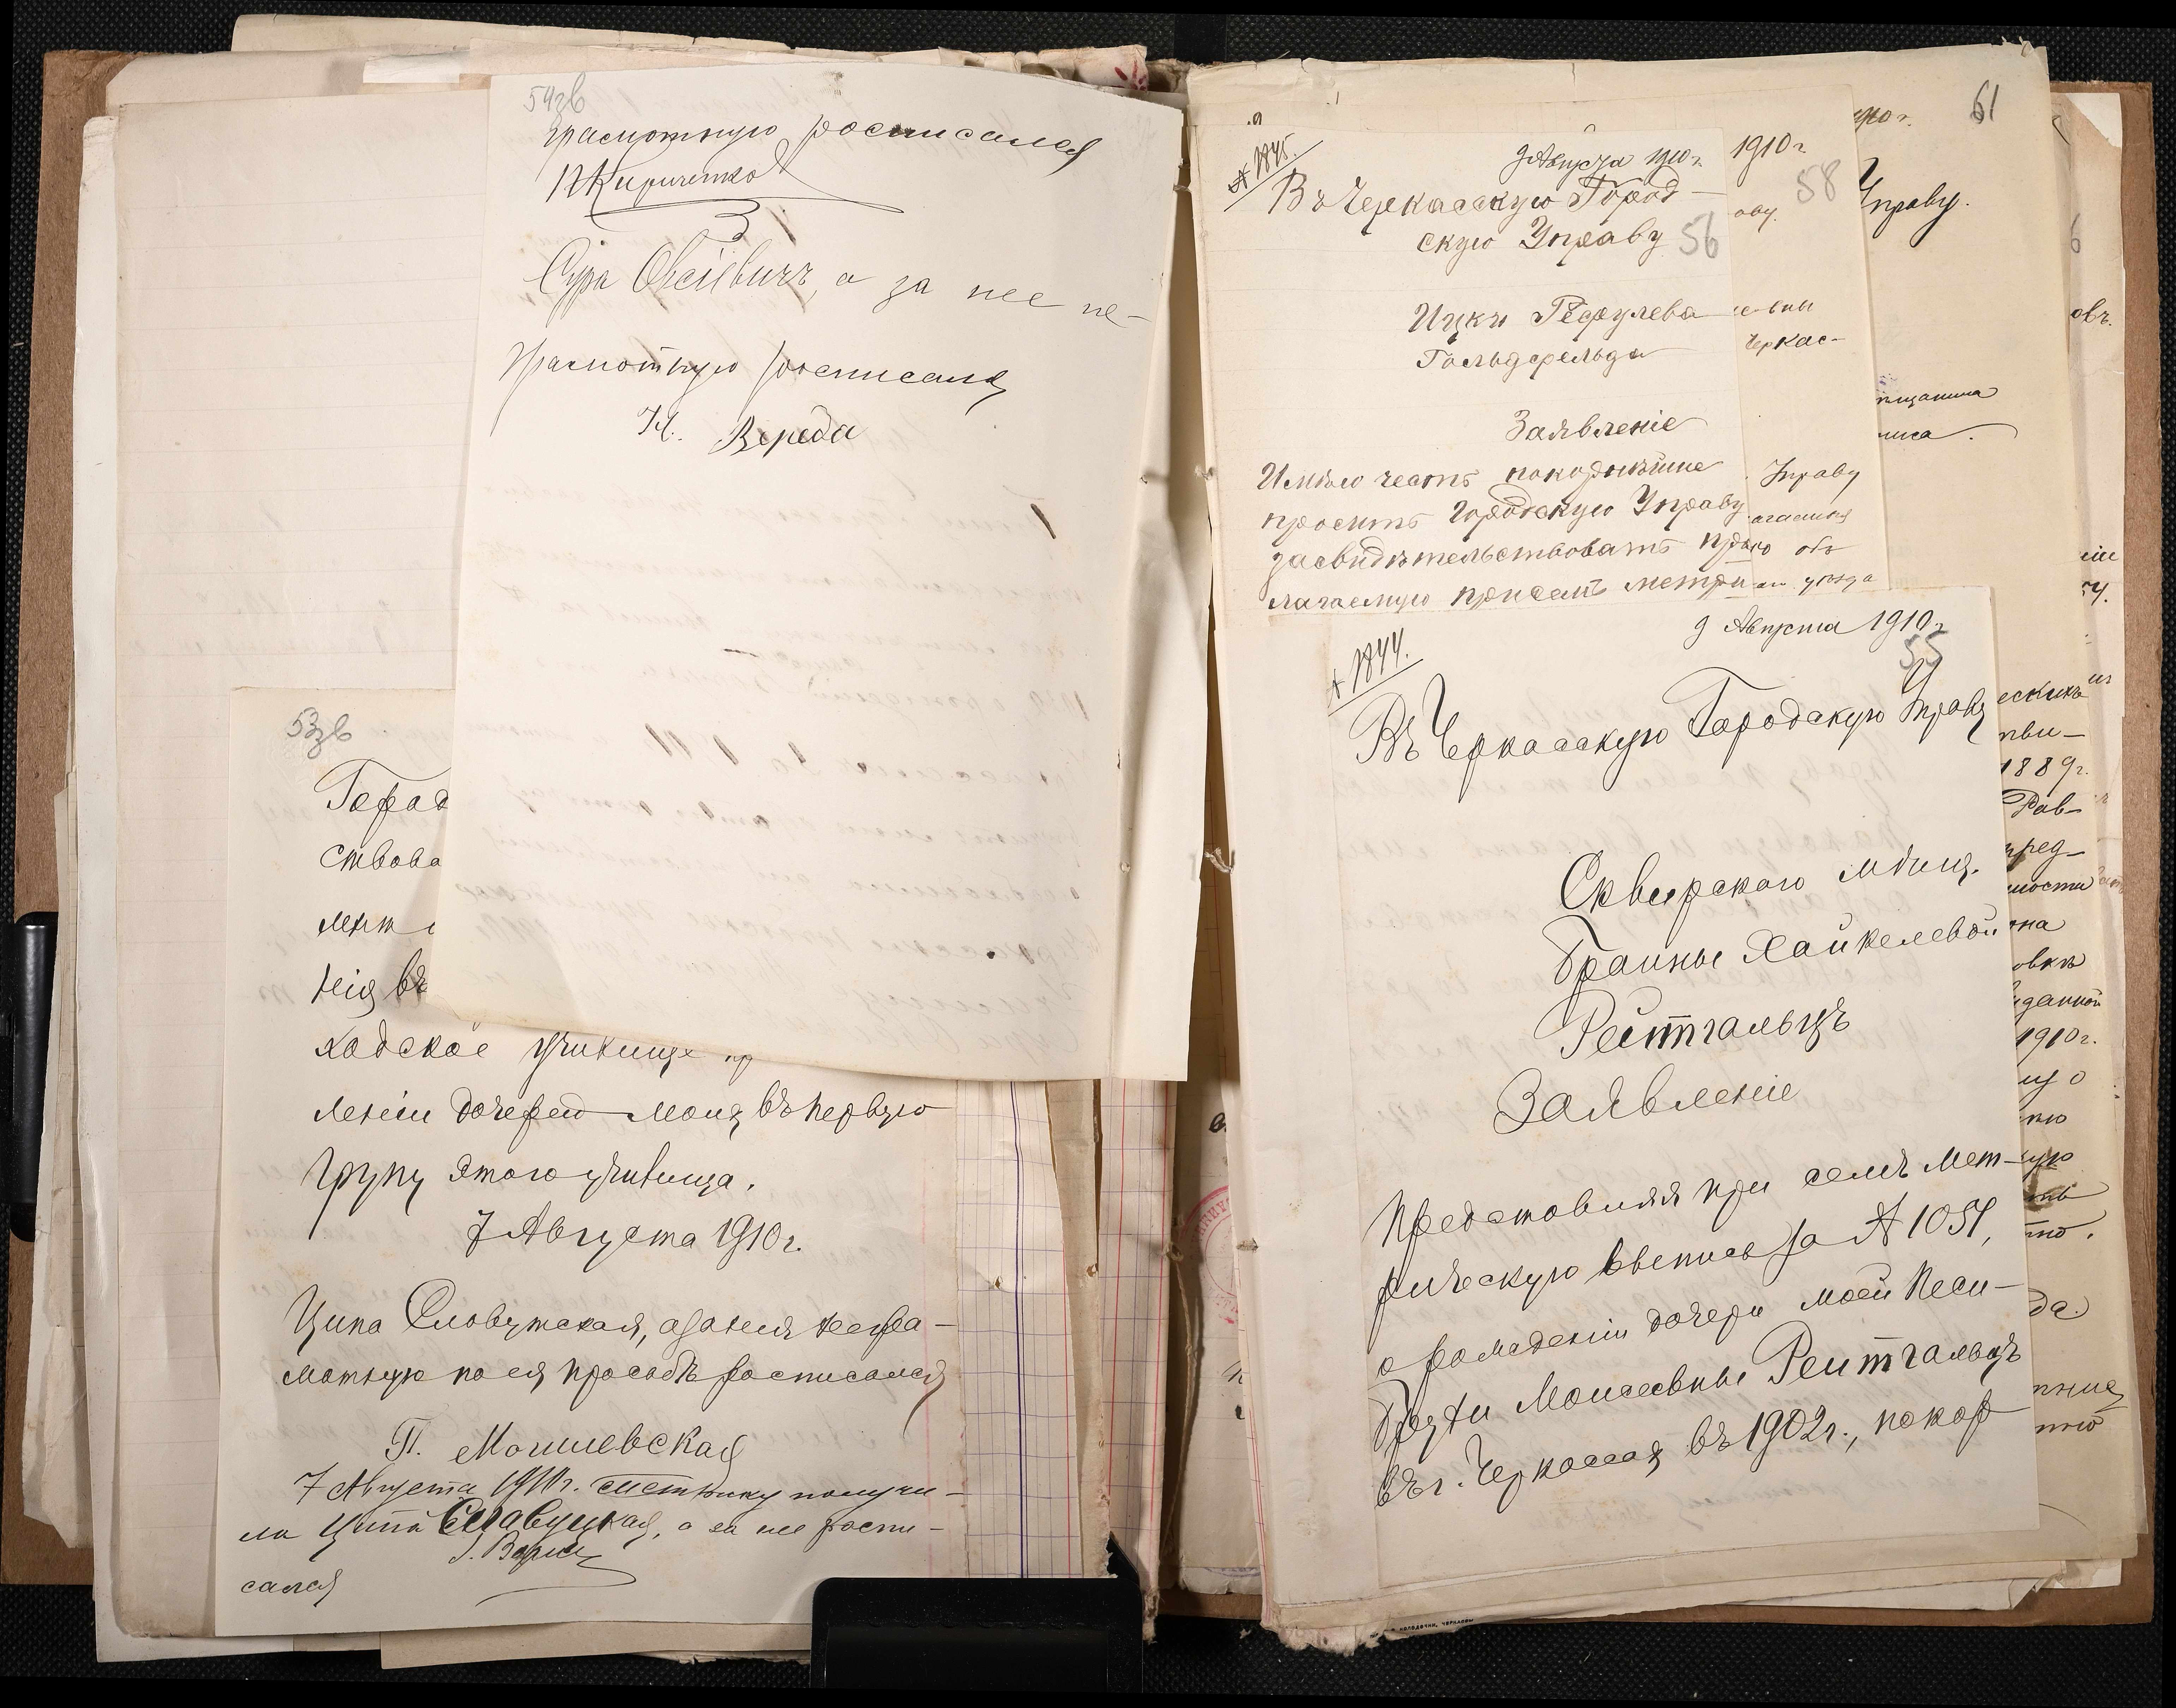 54зв
грамотную росписался
П Кириченко
Сура Овсіевичъ, а за нее не-
грамотную росписался
Н. Вереда
53зв
Город
ствова
мент
нія въ
ходское училище
леніи дочерей моихъ въ первую
групу этого училища.
7 Августа 1910 г.
Ципа Словутская, а за нея негра-
мотную по ея просьбѣ росписался
П. Могилевская
7 Августа 1910 г. метрику получи-
ла Ципа Славуцкая, а за нее роспи-
сался
№ 1845.
9 Августа 1910 г.
Въ Черкасскую Город-
скую Управу
56
Ицки Рефулева
Гольдфельда
Заявленіе
Имѣю честь покорнѣйше
просить Городскую Управу
засвидѣтельствовать при
лагаемую присемъ метри
1910 г
58
ову.
евны
Черкас-
Управу
агаемыя
ую объ
уѣзда
61
1910 г.
Управу.
мѣщанина
лиса.
овъ.
№ 1844.
9 Августа 1910 г.
55
Въ Черкасскую Городскую Управу
Сквирского мѣщ.
Браины Хайкелевой
Рейтгальцъ
Заявленіе
Представляя при семъ мет-
рическую выпись за № 1051,
о рожденіи дочери моей Песи-
Брухи Моисеевны Рейтгальцъ
въ г. Черкассахъ въ 1902 г., покор
ескихъ
1889 г.
Рав-
пред-
ности
она
овкѣ
иданной
1910 г.
да.